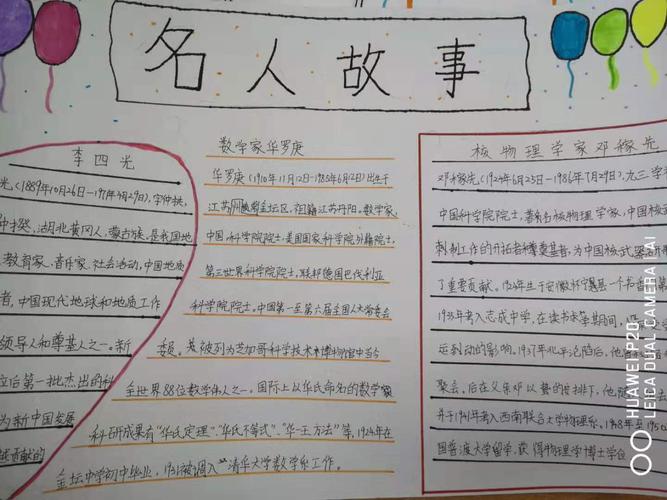 名人故事
李四光
光,(1889年10月26日-1971年4月29日),字仲拱,
仲揆,湖北黄冈人,蒙古族,是我国地
教育家、音乐家、社会活动,中国地质
者,中国现代地球和地质工作
领导人和尊基人之一。新
立后第一批杰出的科
为新中国发展
贡献的
数学家华罗庚
华罗庚(1910年11月12日-1985年6月12日)出生于
江苏 金坛区,祖籍江苏丹阳。数学家,
中国,科学院院士,美国国家科学院外籍院士,
第三世界科学院院士,联邦德国巴伐利亚
科学院院士。中国第一至第六届全国人大常委会
委员。 被列为芝加哥科学技术 博物馆中当今
全世界88位数学伟人之一。国际上以华氏命名的数学
科研成果有“华氏定理”、“华氏不等式”、“华—王方法”等,1924年在
金坛中学初中毕业,1931被调入“清华大学数学系工作。
核物理学家邓稼先
邓稼先(1924年6月25日—1986年7月29日),九三学
中国科学院院士,著名核物理学家,中国核武
制工作的开拓者和奠基者,为中国核武器
了重要贡献。1924年生于安徽怀宁县一个书香
1935年考入志成中学,在读书 期间,
运到动的影响。1937年北平沦陷后,他
聚会,后在父亲 的安排下,他
并于1941年考入西南联合大学物理系。1948年至1950
国普渡大学留学,获得物理学博士学位
HUAWEI P20
LEICA DUAL CAMERA | AI